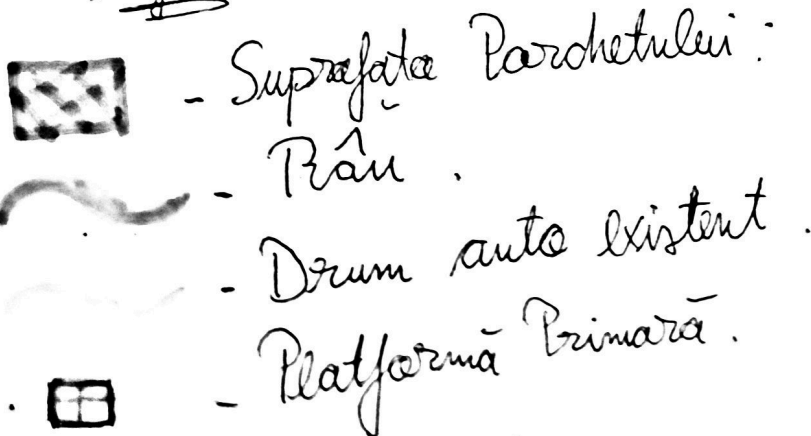 - Suprafața Parchetului:
- Râu.
- Drum auto existent.
- Platformă Primară.